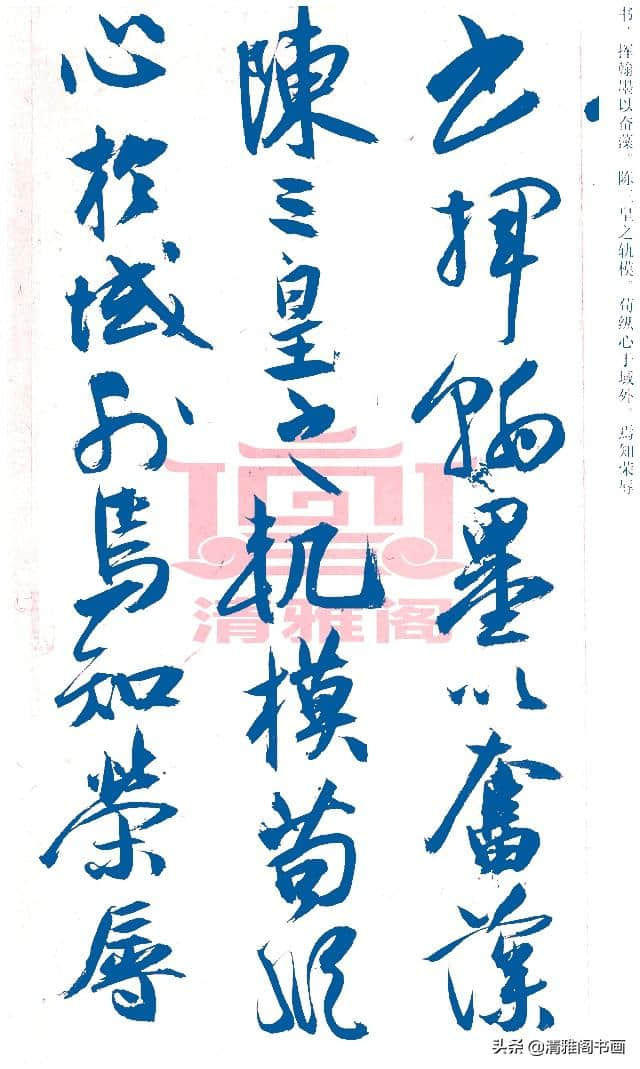 书，挥翰墨以奋藻。陈三皇之轨模。苟纵心于域外，焉知荣辱
書揮翰墨以奮藻
陳三皇之軌模苟縱
心於域外焉知榮辱
清雅阁
头条 @清雅阁书画